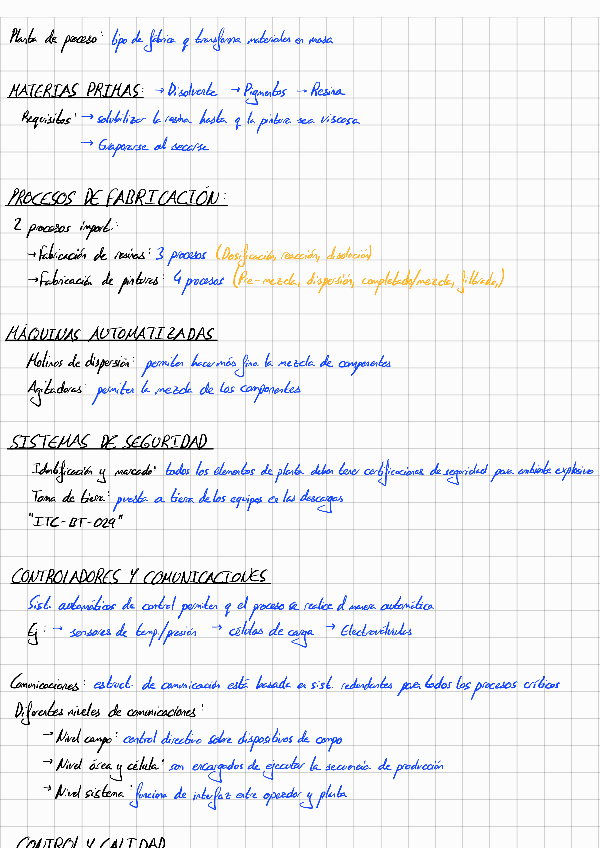 Planta de proceso: tipo de fábrica q transforma materiales en masa
MATERIAS PRIMAS: → Disolvente → Pigmentos → Resina
Requisitos: → solubilizar la resina hasta q la pintura sea viscosa
→ Evaporarse al secarse
PROCESOS DE FABRICACIÓN:
2 procesos import.:
→ Fabricación de resinas: 3 procesos (Dosificación, reacción, disolución)
→ Fabricación de pinturas: 4 procesos (Pre-mezcla, dispersión, completado/mezcla, filtrado,)
MÁQUINAS AUTOMATIZADAS
Molinos de dispersión: permiten hacer más fina la mezcla de componentes
Agitadoras: permiten la mezcla de los componentes
SISTEMAS DE SEGURIDAD
Identificación y marcado: todos los elementos de planta deben tener certificaciones de seguridad para ambiente explosivo
Toma de tierra: puesta a tierra de los equipos en las descargas
"ITC-BT-029"
CONTROLADORES Y COMUNICACIONES
Sist. automáticos de control permiten q el proceso se realice d manera automática
Ej: → sensores de temp/presión → células de carga → Electroválvulas
Comunicaciones: estruct. de comunicación está basada en sist. redundantes para todos los procesos críticos
Diferentes niveles de comunicaciones:
→ Nivel campo: control directivo sobre dispositivos de campo
→ Nivel área y célula: son encargados de ejecutar la secuencia de producción
→ Nivel sistema: funciona de interfaz entre operador y planta
CONTROL Y CALIDAD